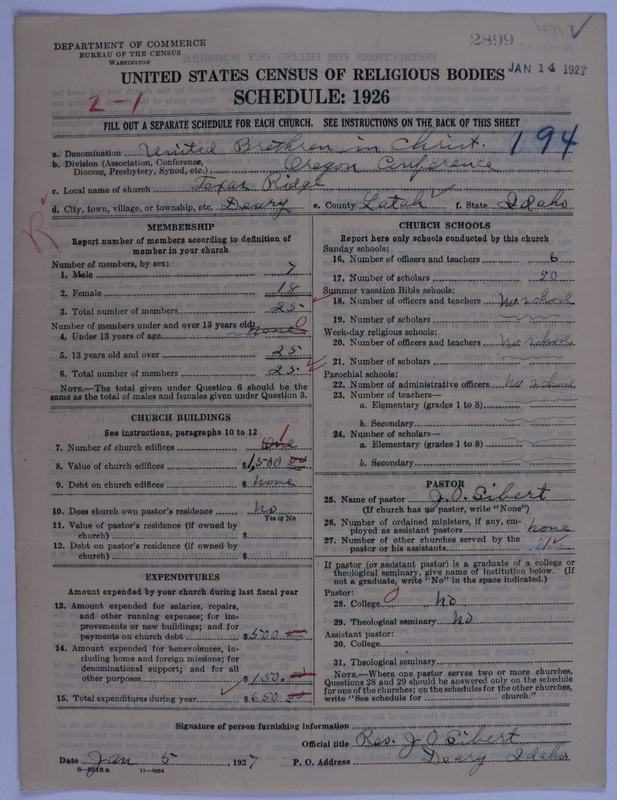 2899
DEPARTMENT OF COMMERCE
BUREAU OF THE CENSUS
WASHINGTON
UNITED STATES CENSUS OF RELIGIOUS BODIES
JAN 14 1927
SCHEDULE: 1926
2-1
FILL OUT A SEPARATE SCHEDULE FOR EACH CHURCH. SEE INSTRUCTIONS ON THE BACK OF THIS SHEET
194
a. Denomination United Brethren in Christ.
b. Division (Association, Conference, Diocese, Presbytery, Synod, etc.) Oregon Conference
c. Local name of church Texas Ridge
d. City, town, village, or township, etc. Deary e. County Latah f. State Idaho
R
MEMBERSHIP
Report number of members according to definition of
member in your church
Number of members, by sex:
1. Male 7
2. Female 18
3. Total number of members 25
Number of members under and over 13 years old:
4. Under 13 years of age none 0
5. 13 years old and over 25
6. Total number of members 25
NOTE.—The total given under Question 6 should be
same as the total of males and females given under Question 3.
CHURCH BUILDINGS
See instructions, paragraphs 10 to 12
7. Number of church edifices One 1
8. Value of church edifices $1,500 00
9. Debt on church edifices $ none
10. Does church own pastor's residence No
Yes or No
11. Value of pastor's residence (if owned by
church) $
12. Debt on pastor's residence (if owned by
church) $
EXPENDITURES
Amount expended by your church during last fiscal year
13. Amount expended for salaries, repairs,
and other running expenses; for im-
provements or new buildings; and for
payments on church debt $500 00
14. Amount expended for benevolences, in-
cluding home and foreign missions; for
denominational support; and for all
other purposes $150.00
15. Total expenditures during year $650 00
CHURCH SCHOOLS
Report here only schools conducted by this church
Sunday schools:
16. Number of officers and teachers 6
17. Number of scholars 50
Summer vacation Bible schools:
18. Number of officers and teachers no school
19. Number of scholars
Week-day religious schools:
20. Number of officers and teachers no schools
21. Number of scholars
Parochial schools:
22. Number of administrative officers no school
23. Number of teachers—
a. Elementary (grades 1 to 8)
b. Secondary
24. Number of scholars—
a. Elementary (grades 1 to 8)
b. Secondary
PASTOR
25. Name of pastor J. O. Sibert
(If church has no pastor, write "None")
26. Number of ordained ministers, if any, em-
ployed as assistant pastors none
27. Number of other churches served by the
pastor or his assistants
If pastor (or assistant pastor) is a graduate of a college or
theological seminary, give name of institution below. (If
not a graduate, write "No" in the space indicated.)
Pastor:
28. College 0 no
29. Theological seminary no
Assistant pastor:
30. College
31. Theological seminary
NOTE.—Where one pastor serves two or more churches,
Questions 28 and 29 should be answered only on the schedule
for one of the churches; on the schedules for the other churches,
write "See schedule for church."
Signature of person furnishing information
Official title Rev. J O Sibert
Date Jan 5, 1927 P. O. Address Deary Idaho